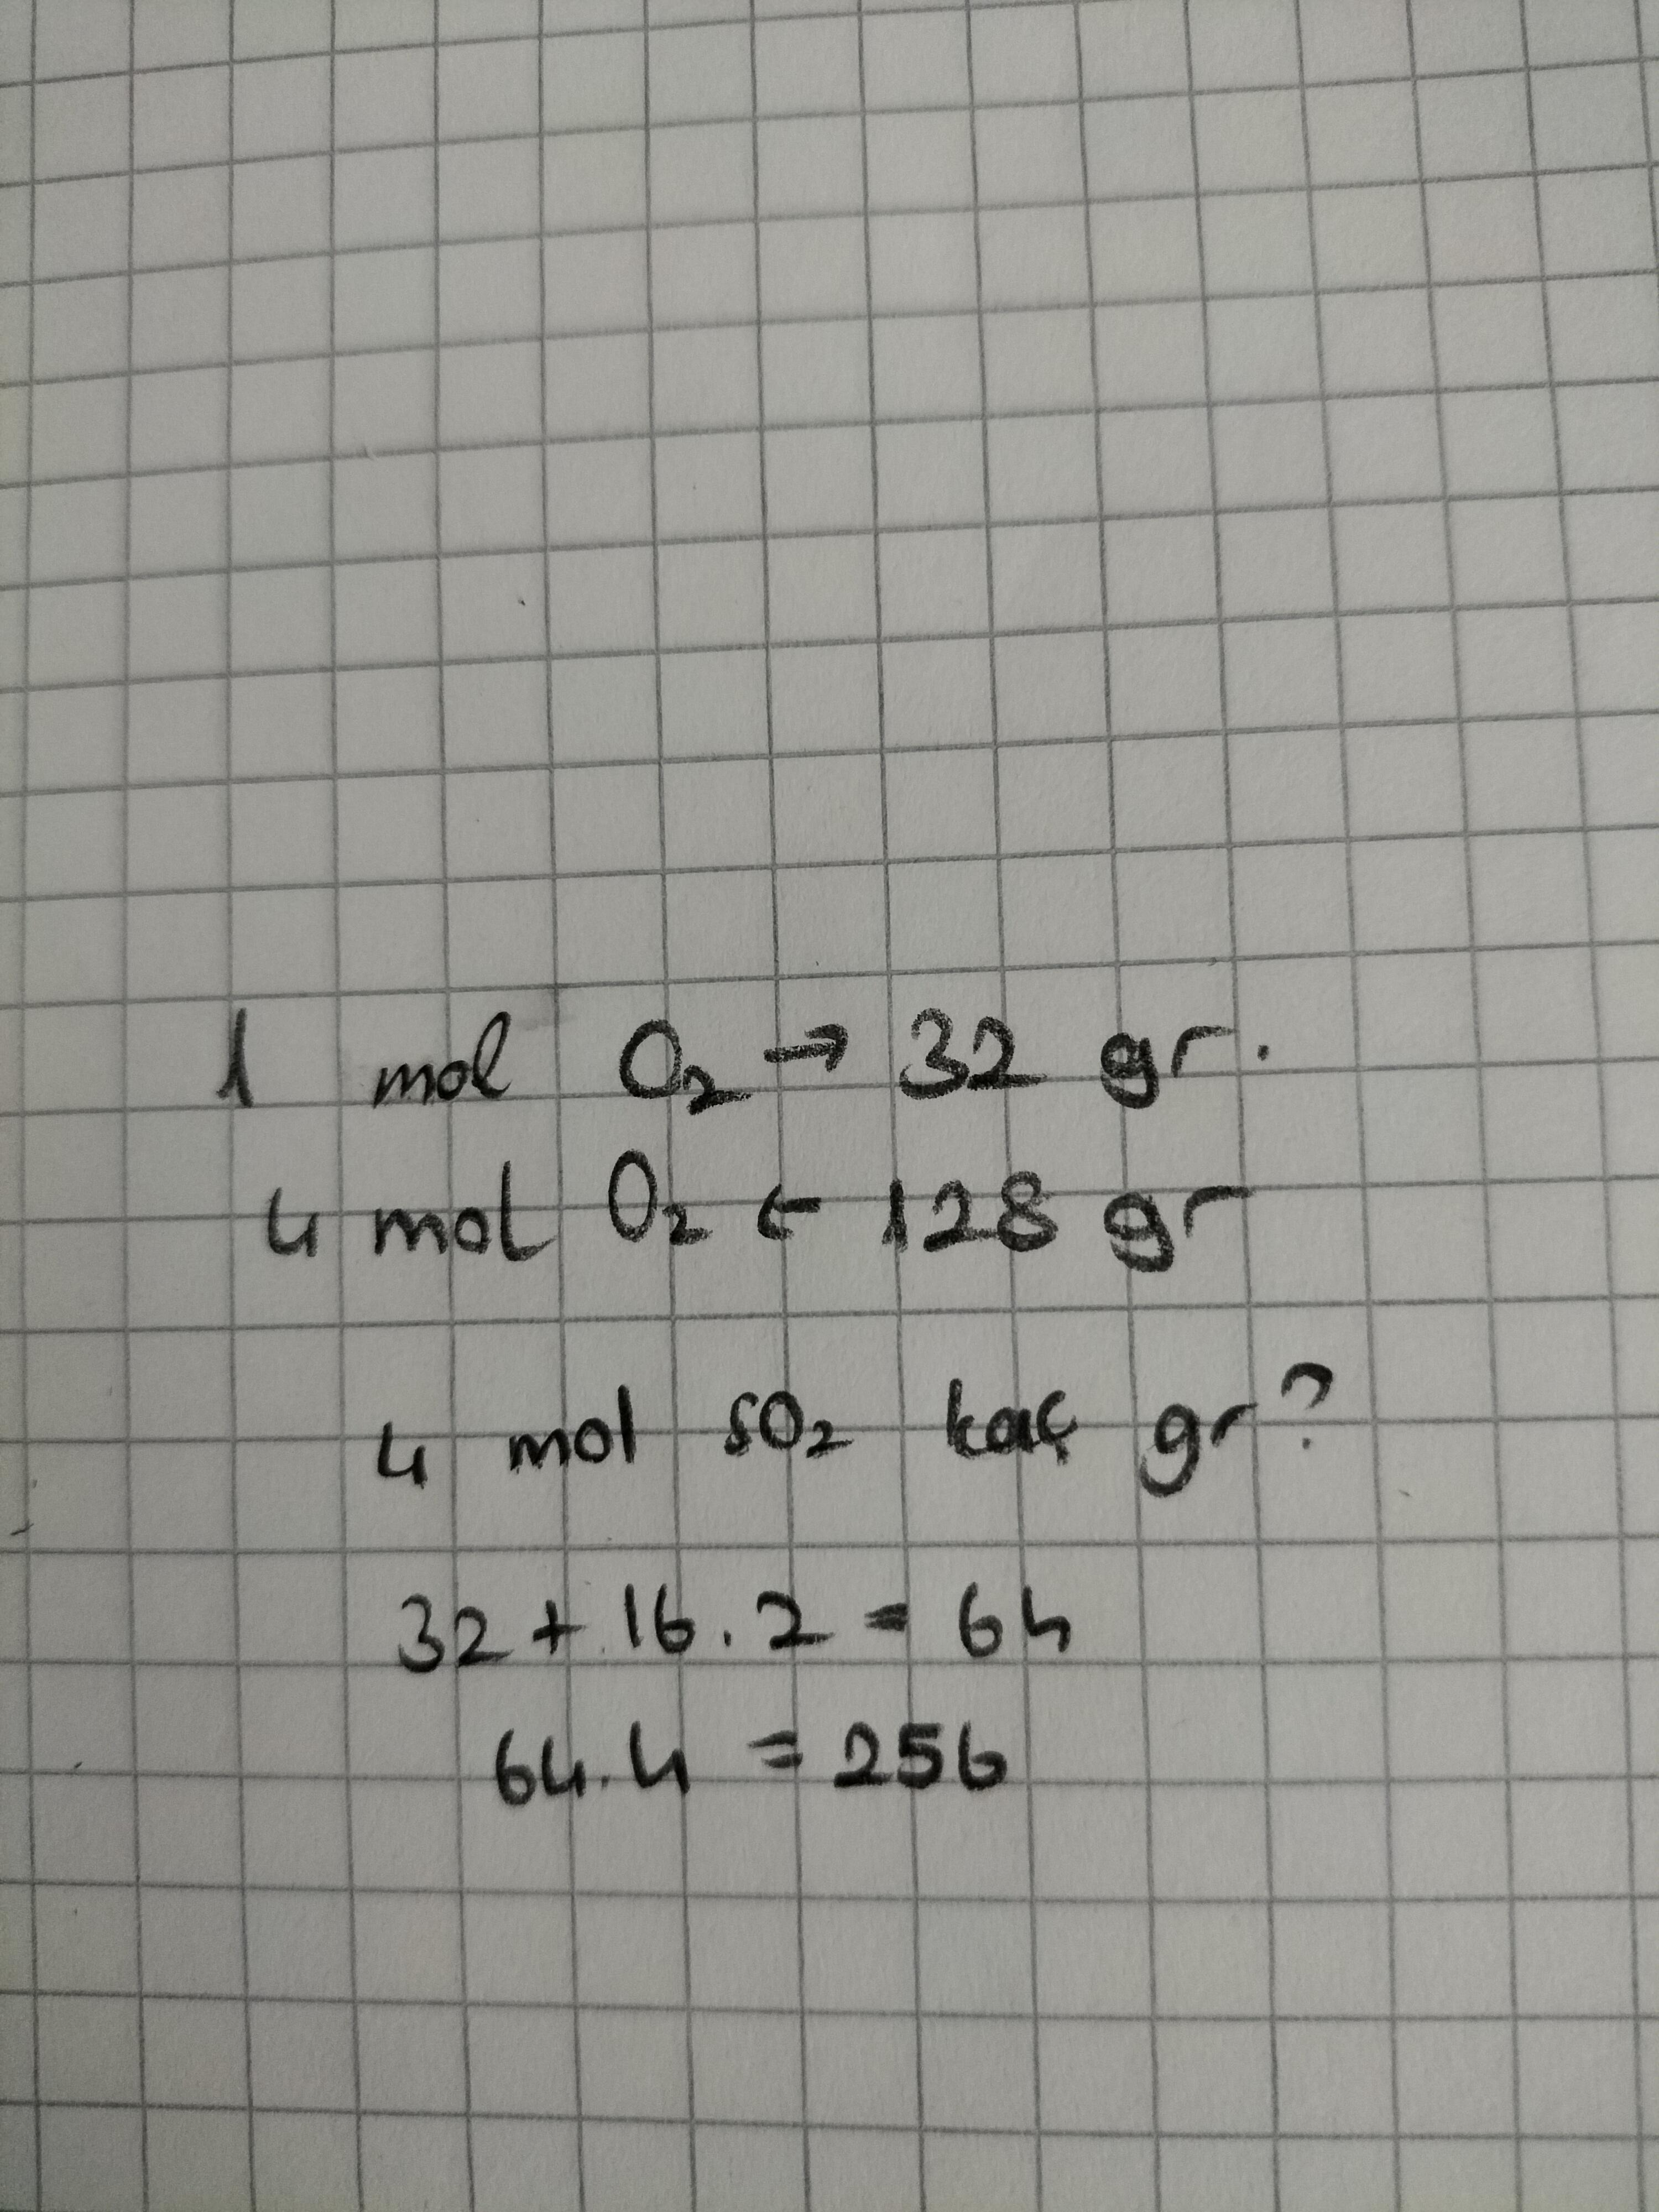 1 mol O₂ → 32 gr.
4 mol O₂ ← 128 gr
4 mol SO₂ kaç gr?
32 + 16 . 2 = 64
64 . 4 = 256